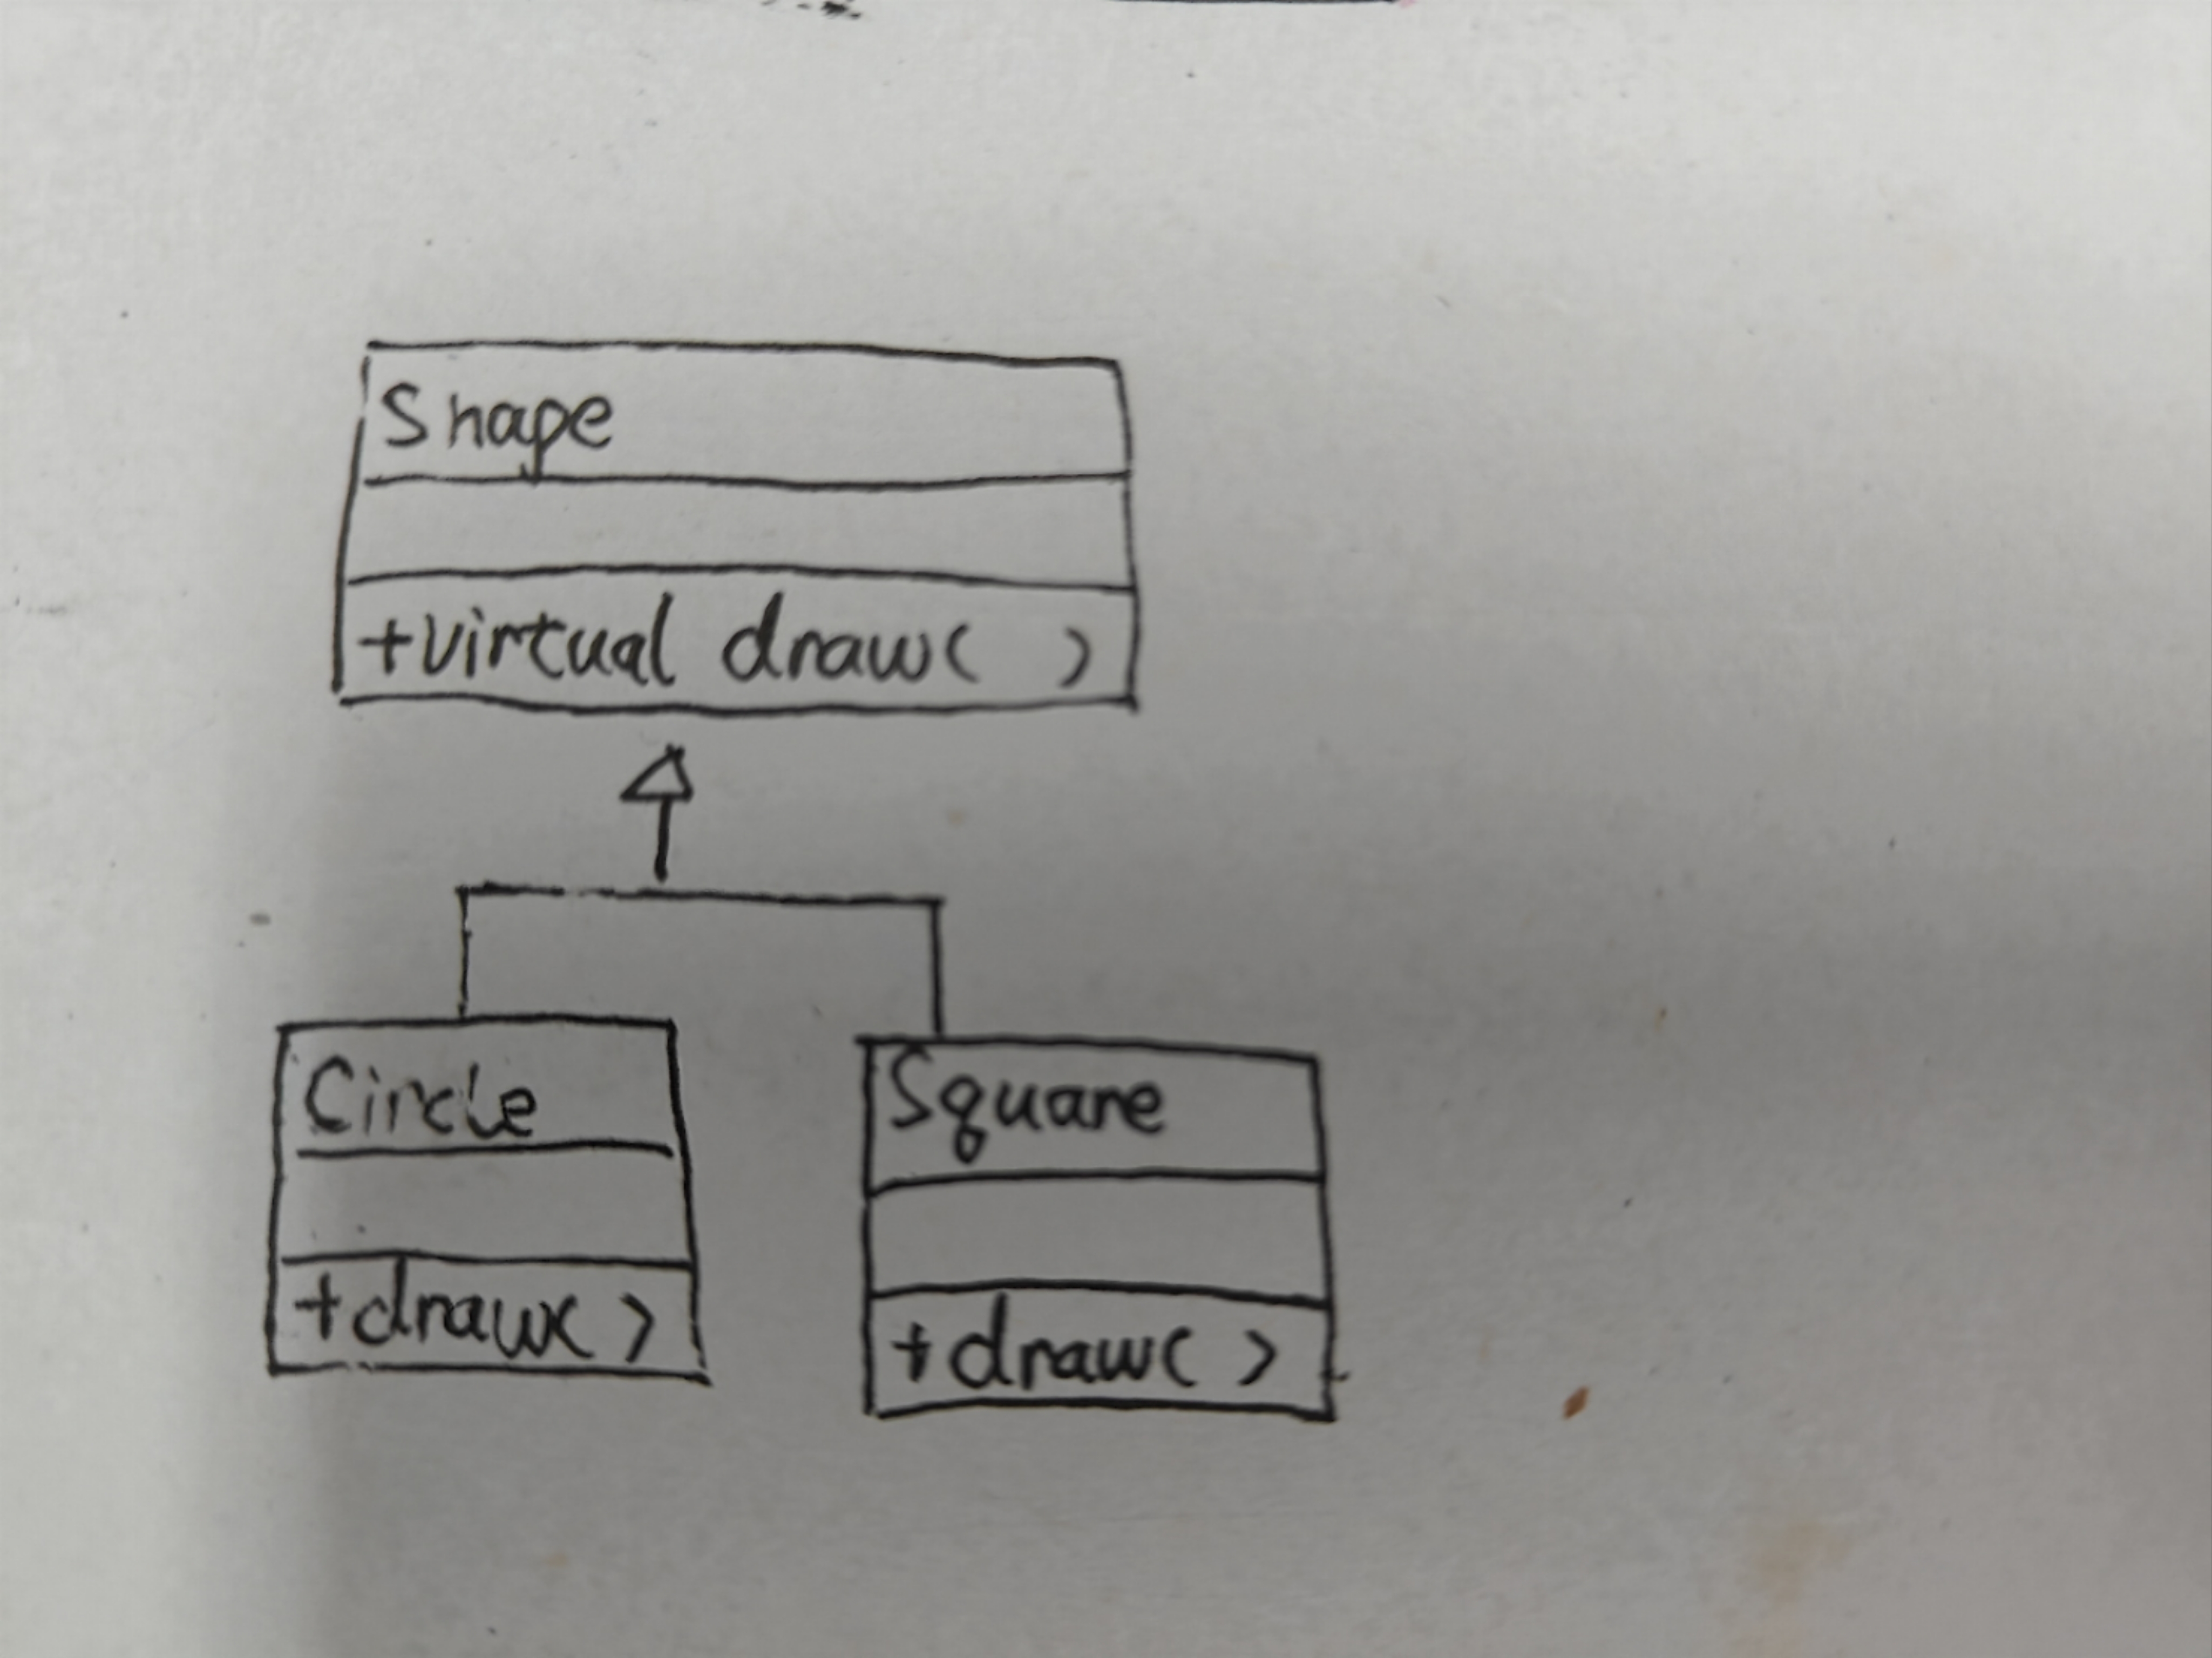 Shape
+virtual draw( )
Circle
+draw( )
Square
+draw( )